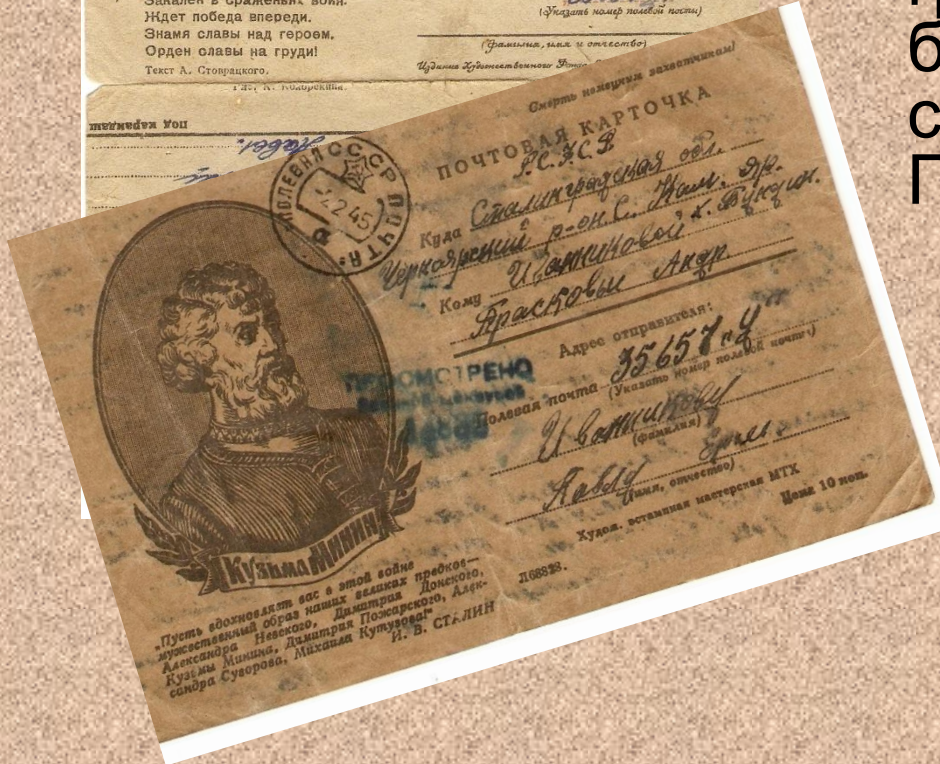 Закален в сраженьях воин.
Ждет победа впереди.
Знамя славы над героем,
Орден славы на груди!
Текст А. Стоврацкого.
(Указать номер полевой почты)
(фамилия, имя и отчество)
Издание Художественного
Под карандаш
Павел.
б
с
П
Смерть немецким захватчикам!
ПОЧТОВАЯ КАРТОЧКА
Р.С.Ф.С.Р.
Куда Сталинградская обл.
Черноярский р-он. С. Кам. Яр.
Кому Иванниковой
Прасковье Андр.
Адрес отправителя:
Полевая почта 35657 "У"
(Указать номер полевой почты)
Иванникову
(фамилия)
Павлу Ермол.
(имя, отчество)
Худож. эстампная мастерская МТХ
Цена 10 коп.
Л68828.
ПОЛЕВАЯ ПОЧТА СССР
2 2 45
ПРОСМОТРЕНО
Кузьма Минин
„Пусть вдохновляет вас в этой войне
мужественный образ наших великих предков—
Александра Невского, Димитрия Донского,
Кузьмы Минина, Димитрия Пожарского, Алек-
сандра Суворова, Михаила Кутузова!"
И. В. СТАЛИН